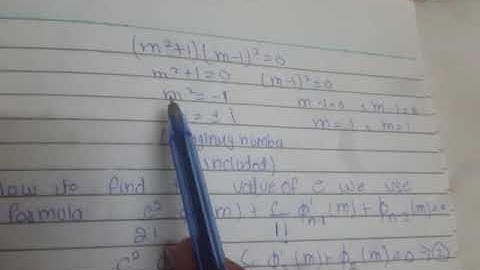 (m²+1)(m-1)²=0
m²+1=0 (m-1)²=0
m²=-1 m-1=0, m-1=0
= ±i m=1, m=1
numba
included)
Now to find value of c we use
formula c² (m) + c/1! φ'n-1 (m) + φn-2 (m)=0
2!
c² (m) + φ (m)=0